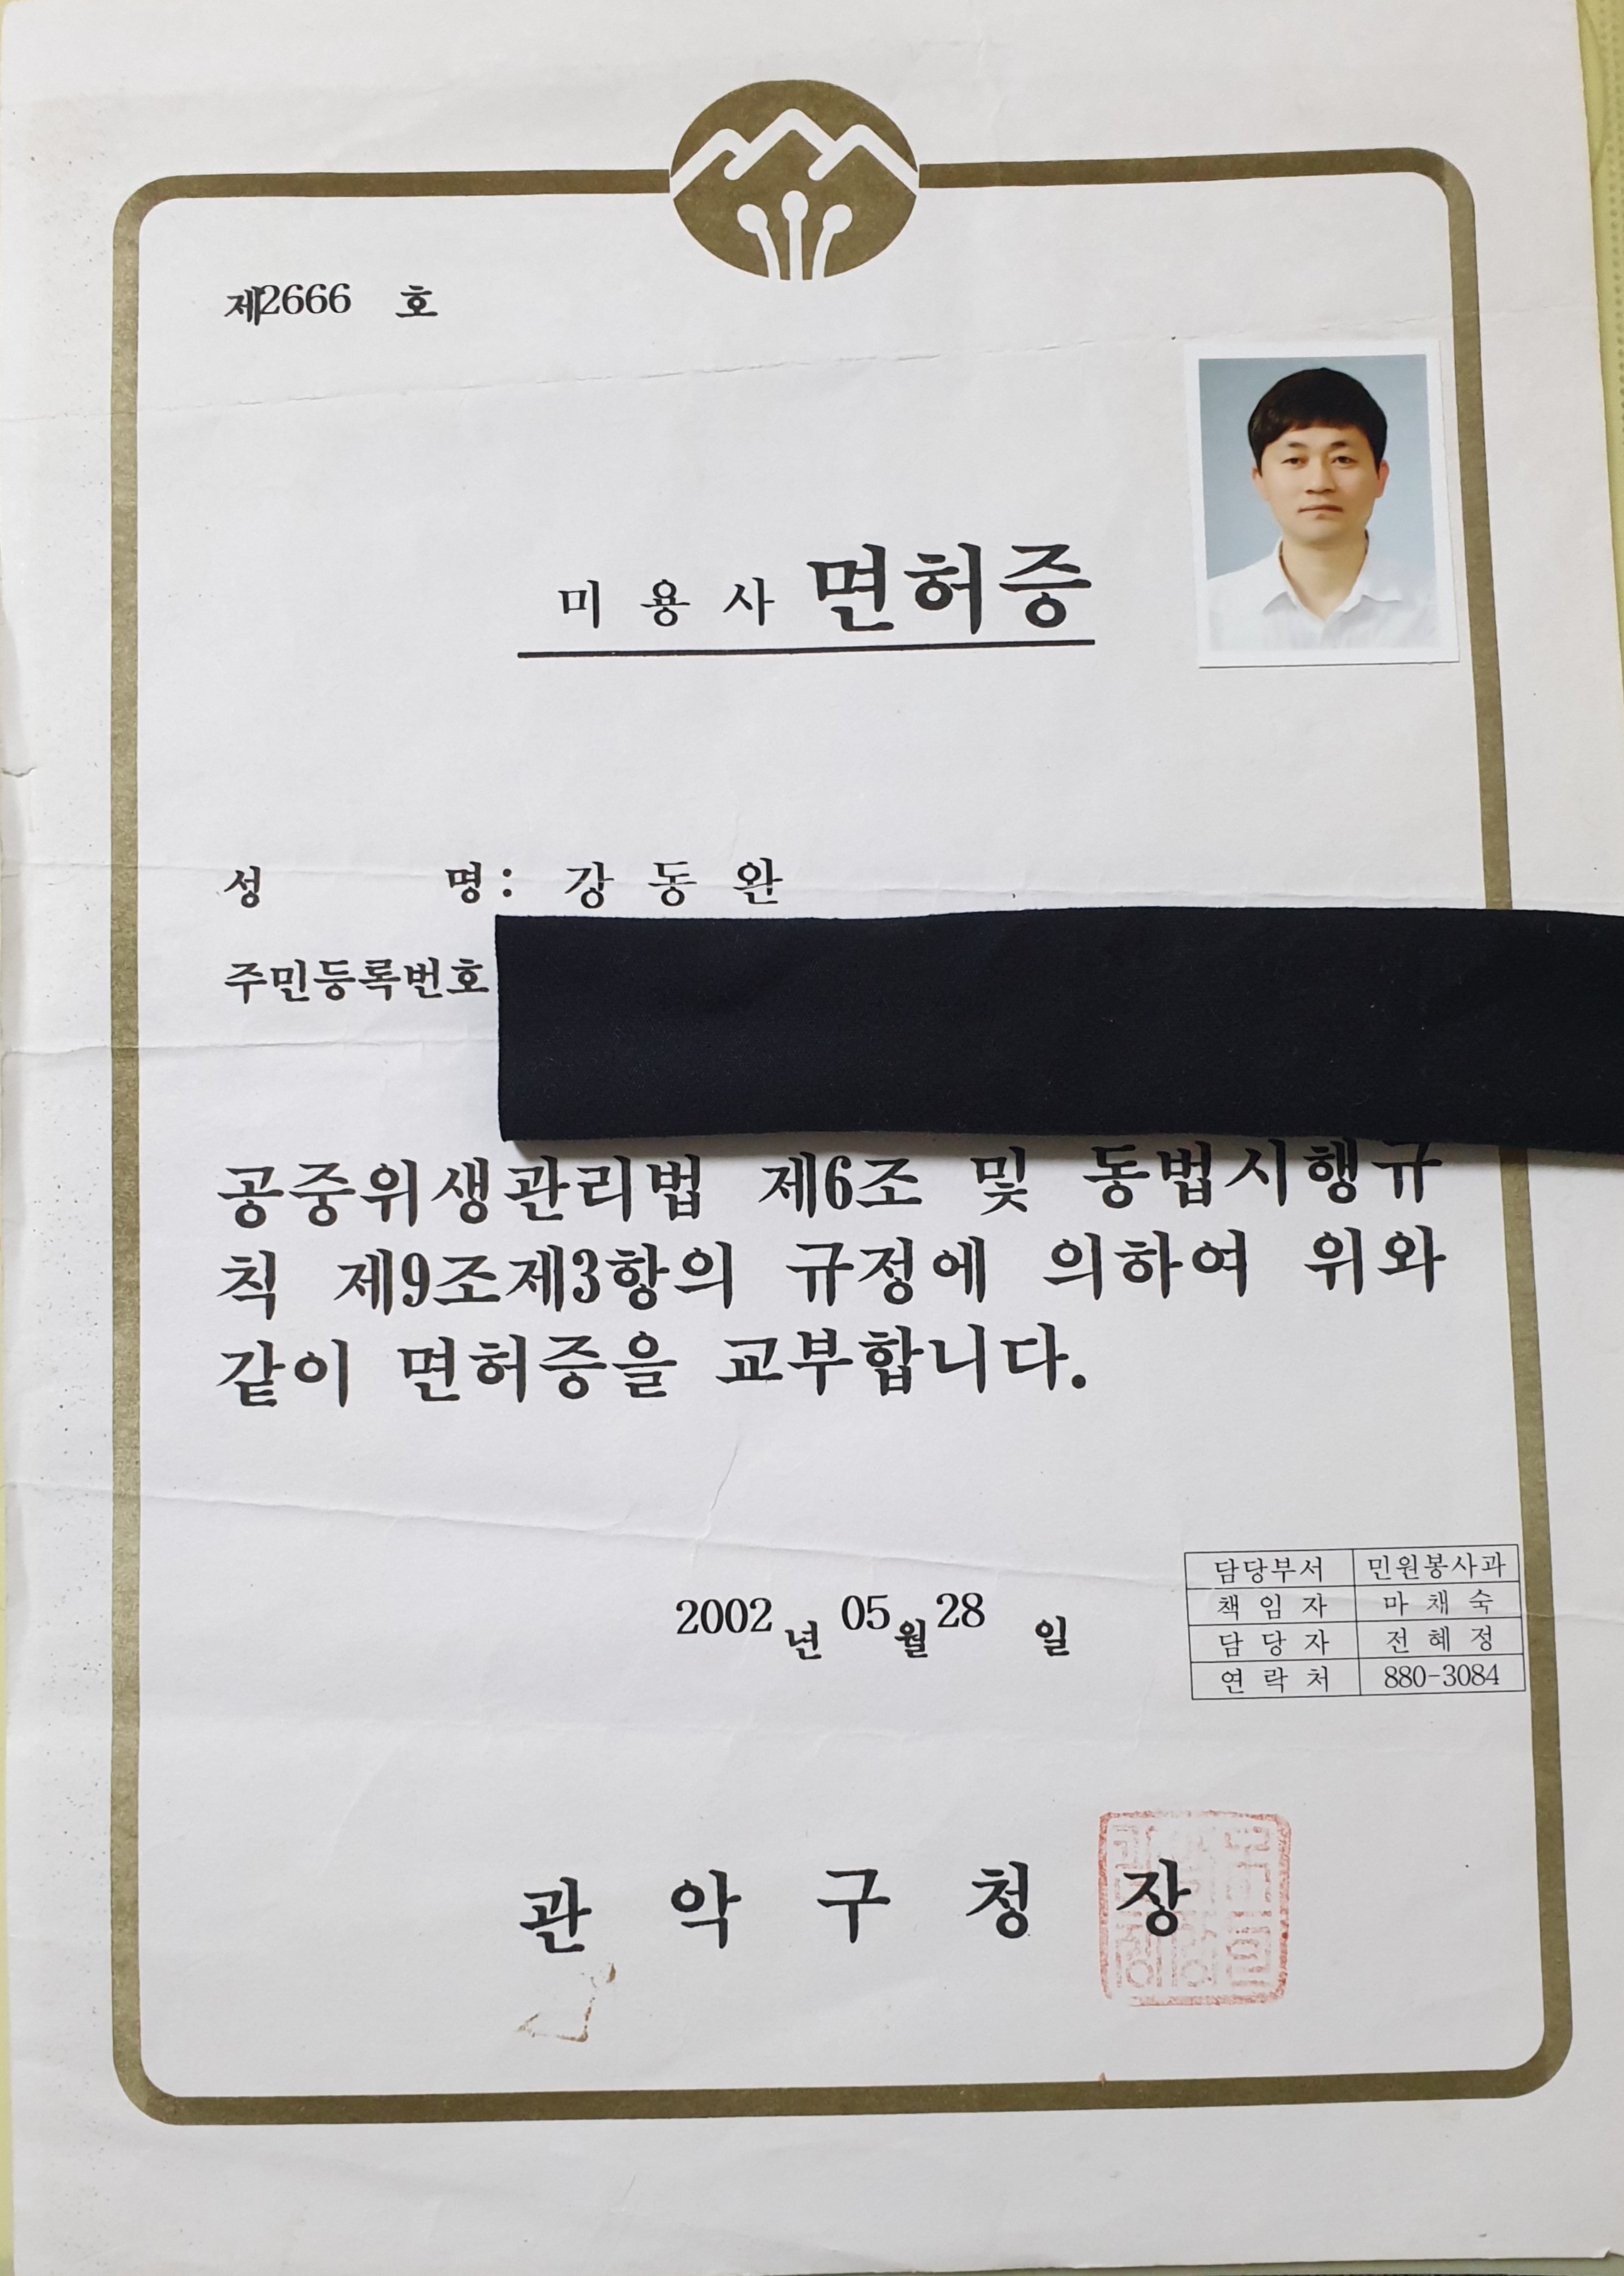 제2666 호
미 용 사 면허증
성 명: 강 동 완
주민등록번호
공중위생관리법 제6조 및 동법시행규
칙 제9조제3항의 규정에 의하여 위와
같이 면허증을 교부합니다.
담당부서 민원봉사과
책 임 자 마 채 숙
담 당 자 전 혜 정
연 락 처 880-3084
2002 년 05 월 28 일
관 악 구 청 장